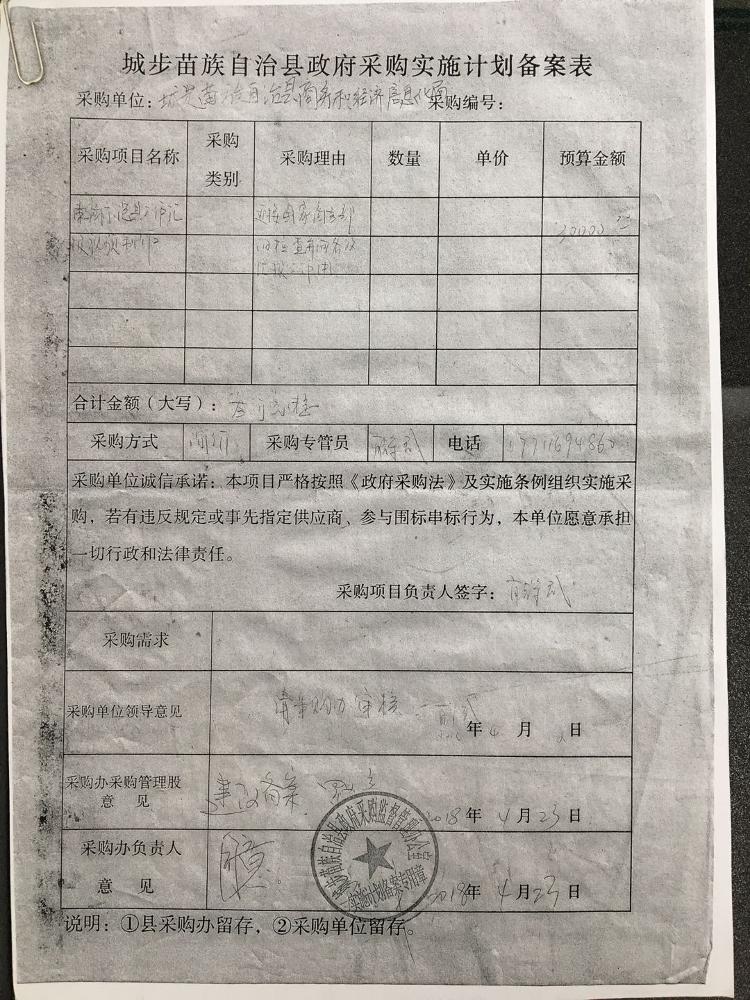 城步苗族自治县政府采购实施计划备案表
采购单位：城步苗族自治县商务和经济信息化局 采购编号：
采购项目名称 采购类别 采购理由 数量 单价 预算金额
迎接国家商务部
20000
合计金额（大写）：
采购方式 询价 采购专管员 电话
采购单位诚信承诺：本项目严格按照《政府采购法》及实施条例组织实施采
购，若有违反规定或事先指定供应商、参与围标串标行为，本单位愿意承担
一切行政和法律责任。
采购项目负责人签字：
采购需求
采购单位领导意见 请采购办审核 年 4 月 日
采购办采购管理股
意 见 建议备案 2018 年 4 月 23 日
采购办负责人
意 见 同意 2018 年 4 月 23 日
城步苗族自治县政府采购监督管理办公室
实施计划备案专用章
说明：①县采购办留存，②采购单位留存。